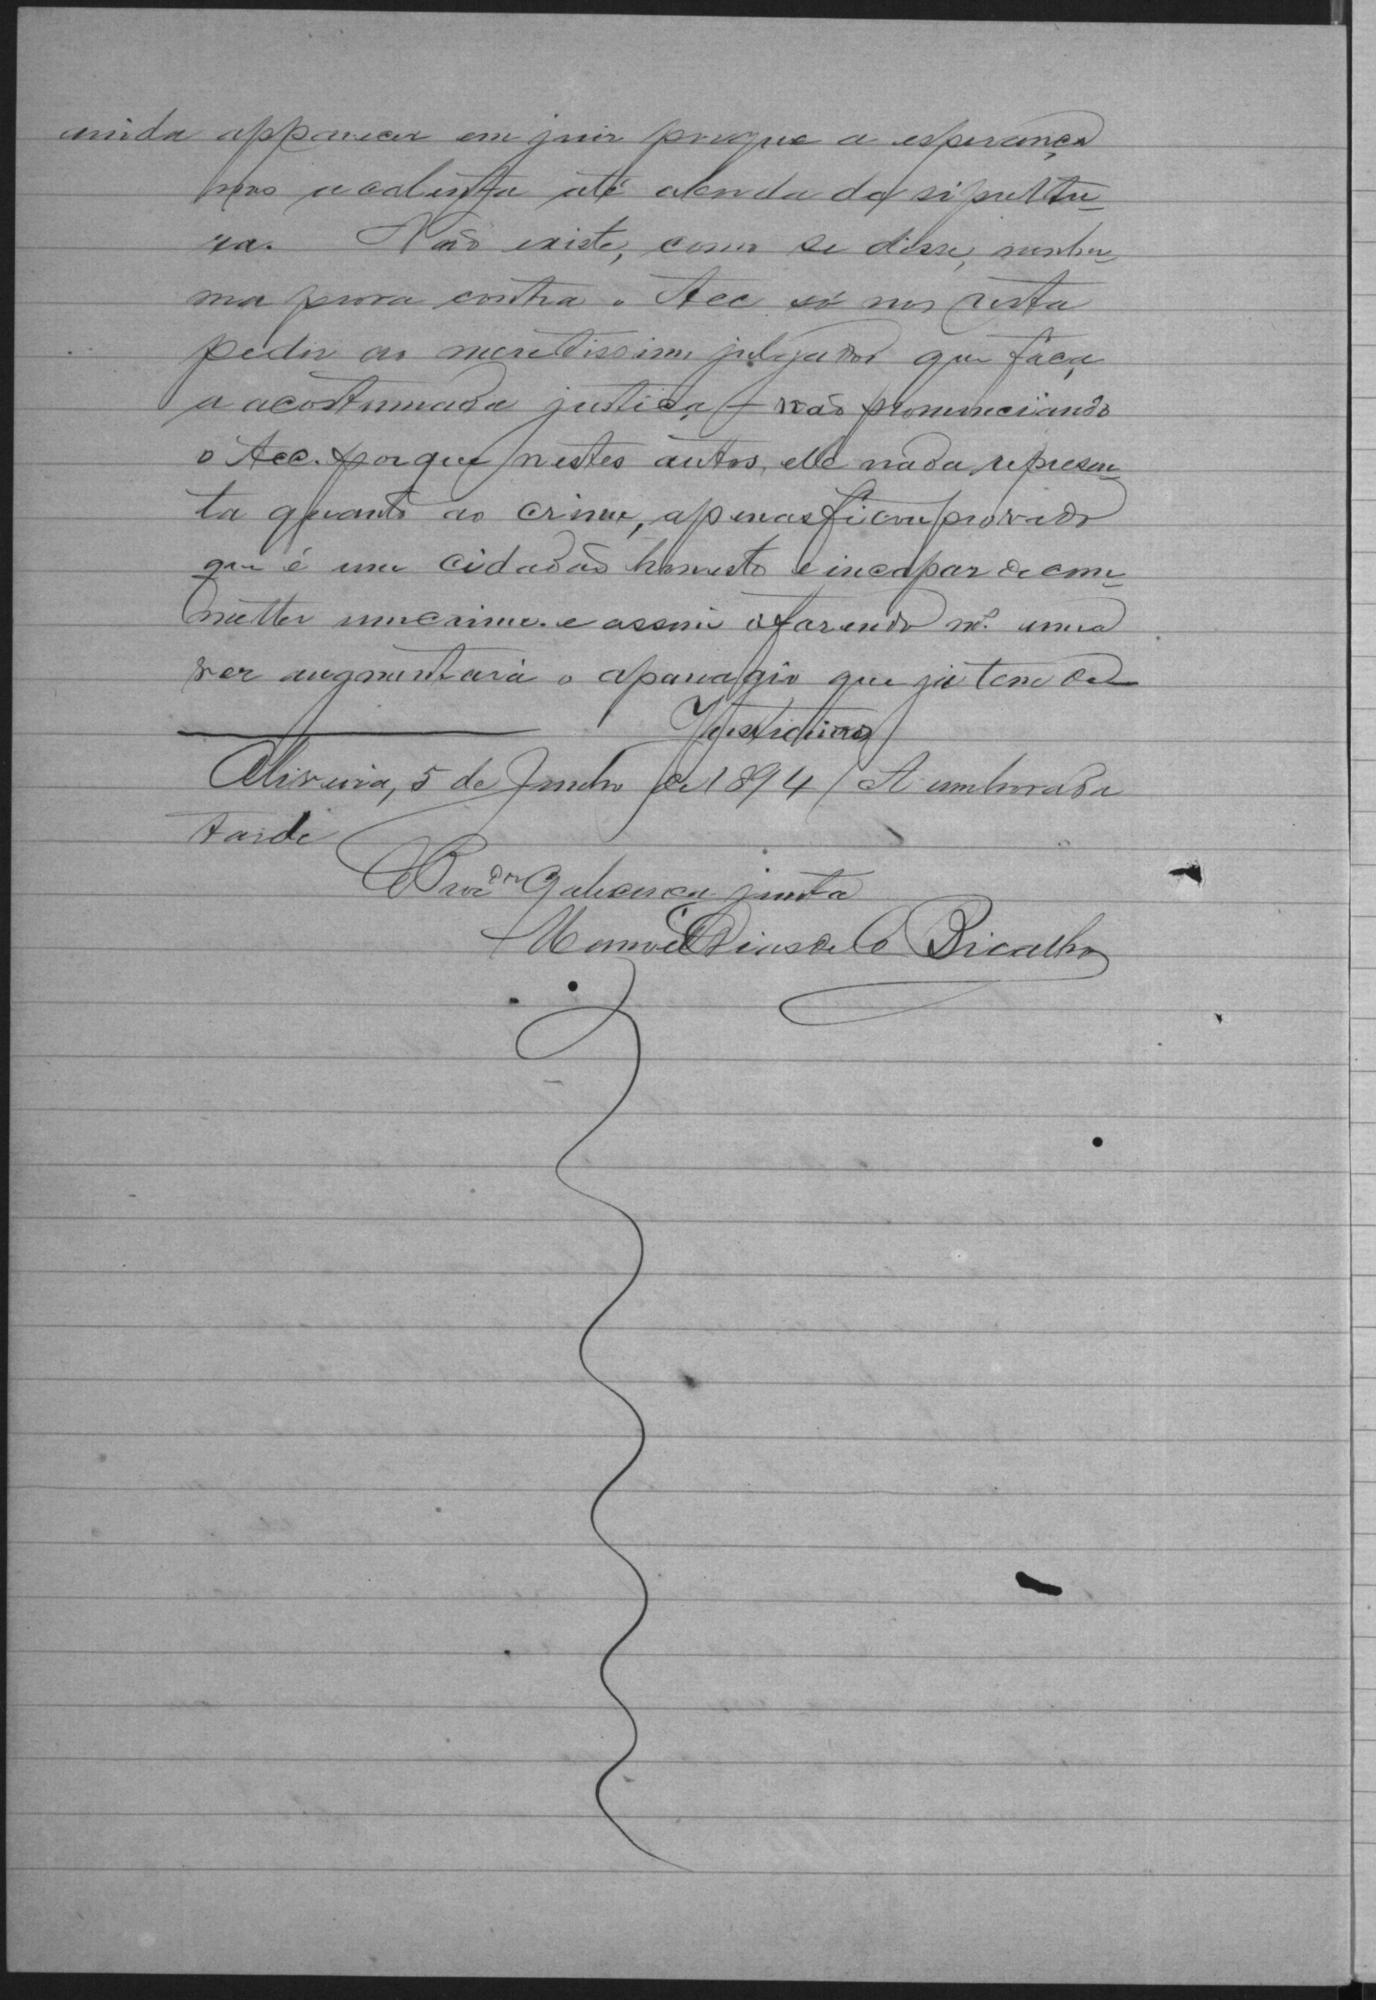 ainda apparecer em juiz porque a esperança
nos acalenta até a borda da sipultu-
ra. Não existe, como se disse, nenhu-
ma prova contra o Acc. só nos resta
pedir ao meretissimo julgador que faça
a acostumada justiça — não pronunciando
o Acc. porque nestes autos, elle nada represen-
ta quanto ao crime, apenas ficou provado
que é um cidadão honesto e incapaz de com-
metter um crime. e assim o fazendo m.s uma
vez augmentará o apanagio que já tem de
Justiceiro
Oliveira, 5 de Junho de 1894 / A uma hora da
tarde
O Proc.dor
junta
Manoel Dias de O Bicalho